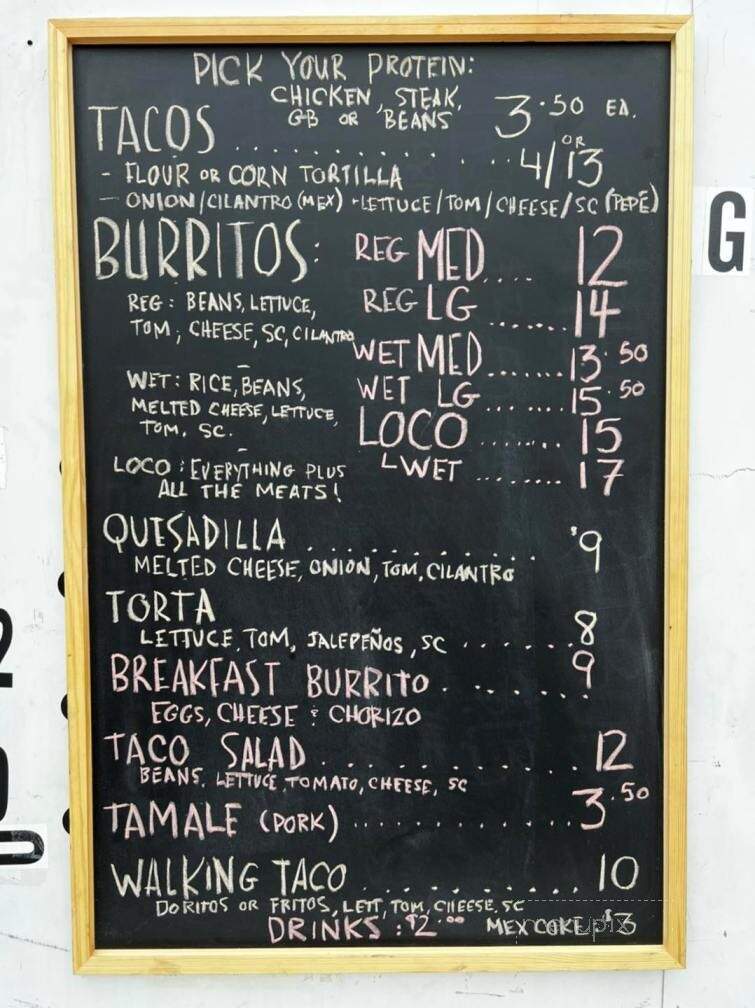 PICK YOUR PROTEIN:
CHICKEN, STEAK,
GB OR BEANS
TACOS . . . . . . . . . . . . 3.50 EA.
OR
4/13
- FLOUR OR CORN TORTILLA
- ONION/CILANTRO (MEX) - LETTUCE/TOM/CHEESE/SC (PEPE)
BURRITOS:
REG MED .... 12
REG: BEANS, LETTUCE,
TOM, CHEESE, SC, CILANTRO
REG LG ....... 14
WET MED ....... 13.50
WET: RICE, BEANS,
MELTED CHEESE, LETTUCE,
TOM, SC.
WET LG ....... 15.50
LOCO ....... 15
LOCO: EVERYTHING PLUS
ALL THE MEATS!
WET ........ 17
QUESADILLA . . . . . . . . . . . $9
MELTED CHEESE, ONION, TOM, CILANTRO
TORTA
LETTUCE, TOM, JALEPEÑOS, SC . . . . . . 8
BREAKFAST BURRITO . . . . . . . 9
EGGS, CHEESE & CHORIZO
TACO SALAD . . . . . . . . . . . 12
BEANS, LETTUCE, TOMATO, CHEESE, SC
TAMALE (PORK) . . . . . . . . . . . 3.50
WALKING TACO . . . . . . . . . . 10
DORITOS OR FRITOS, LETT, TOM, CHEESE, SC
DRINKS: $2.00 MEX COKE: $3
G
2